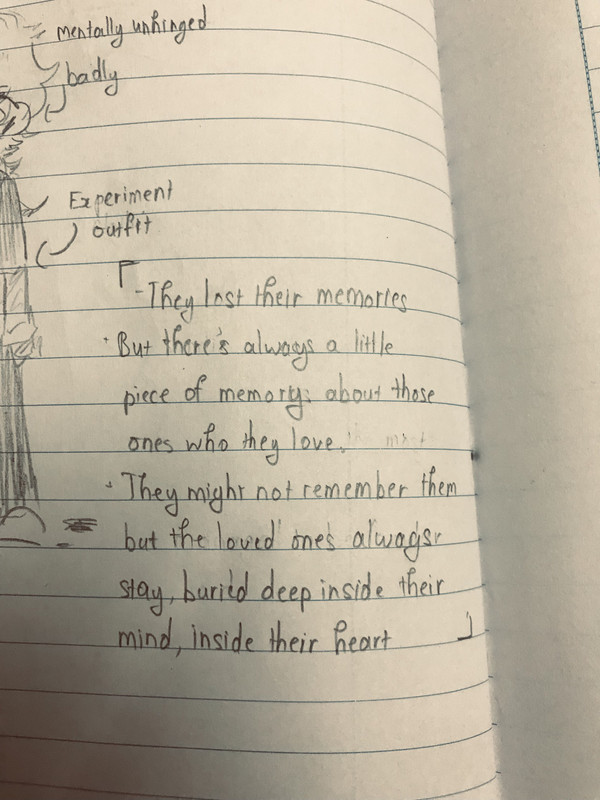 mentally unhinged
badly
Experiment
outfit
「-They lost their memories
· But there's always a little
piece of memory: about those
ones who they love.
· They might not remember them
but the loved ones always
stay, buried deep inside their
mind, inside their heart 」